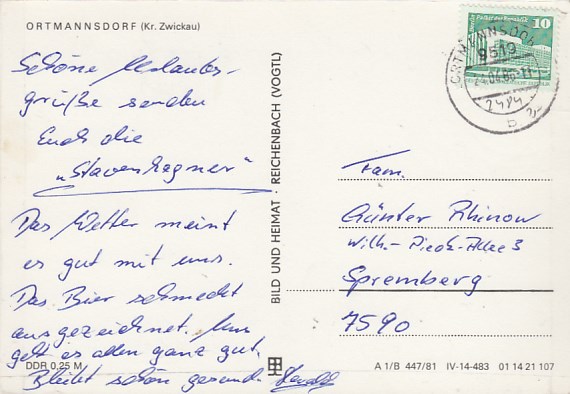 ORTMANNSDORF (Kr. Zwickau)
Schöne Urlaubs-
grüße senden
Euch die
„Stavenhagner"
Das Wetter meint
es gut mit uns.
Das Bier schmeckt
ausgezeichnet. Uns
geht es allen ganz gut.
Bleibt schön gesund.
DDR 0,25 M
BILD UND HEIMAT · REICHENBACH (VOGTL)
10
ORTMANNSDORF
9519
Fam.
Günter Rhinow
Wilh.-Pieck-Allee 3
Spremberg
7590
A 1/B 447/81 IV-14-483 01 14 21 107